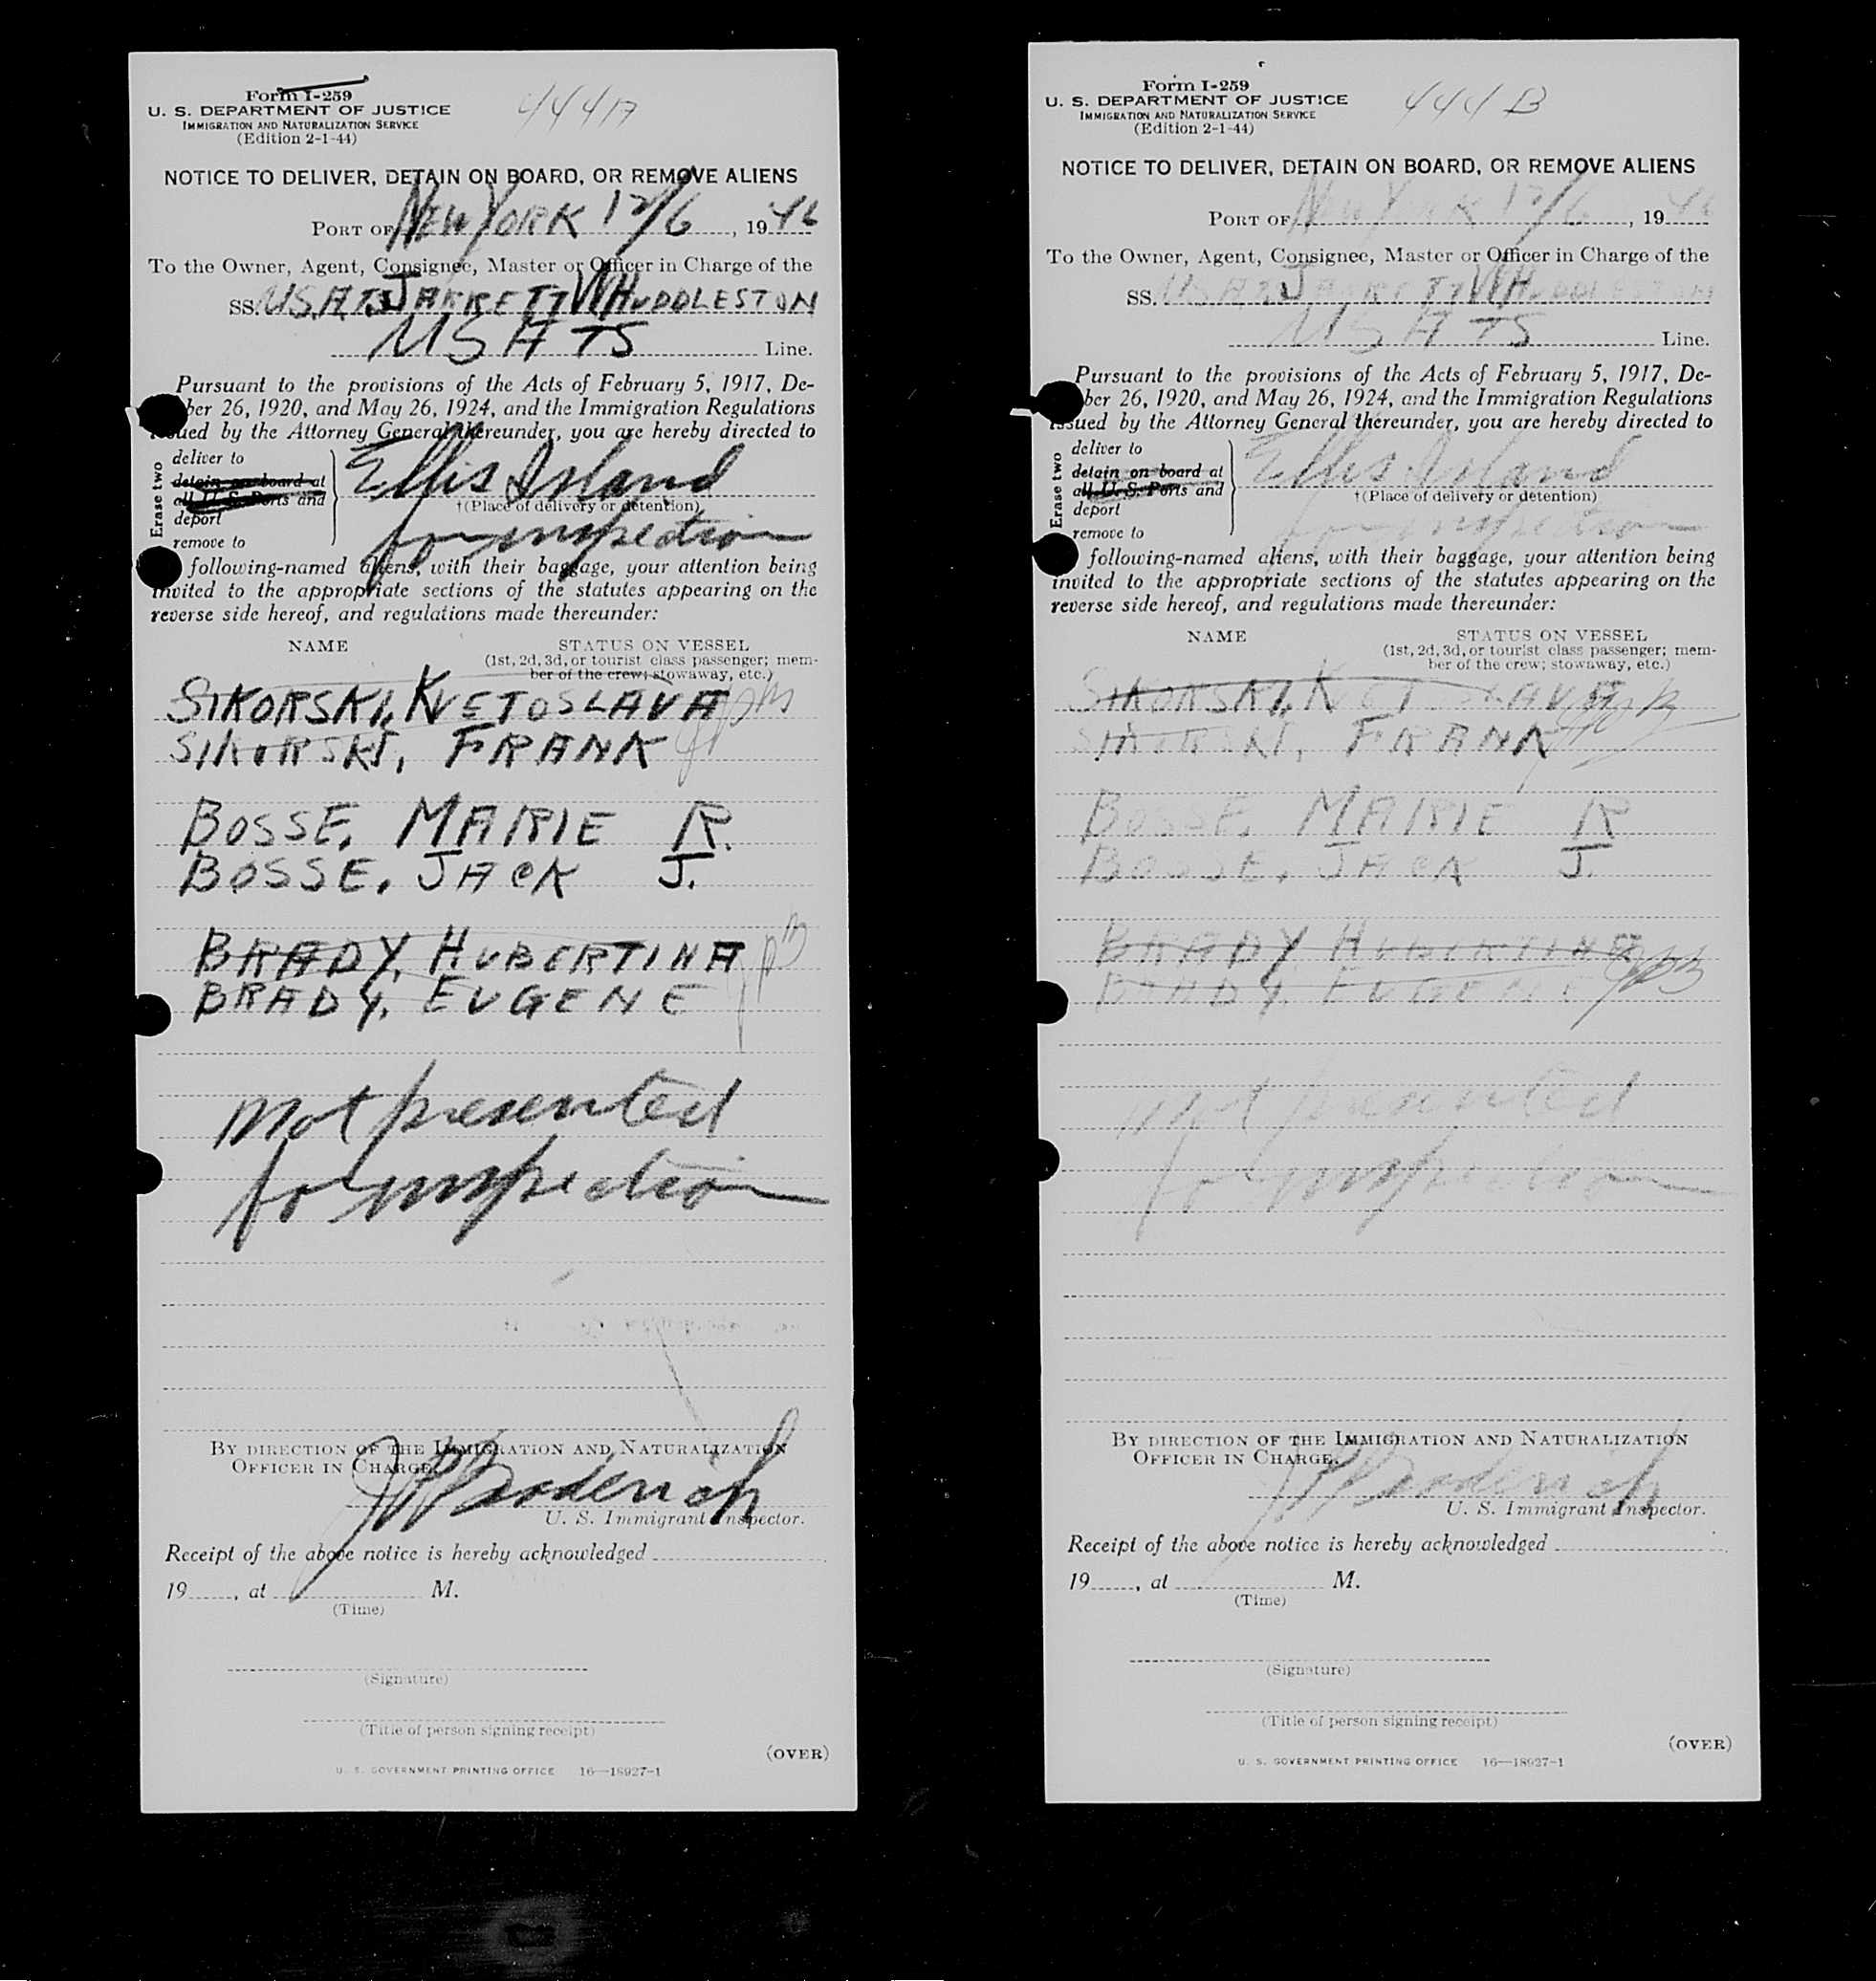 Form I-259
444A
U. S. DEPARTMENT OF JUSTICE
IMMIGRATION AND NATURALIZATION SERVICE
(Edition 2-1-44)
NOTICE TO DELIVER, DETAIN ON BOARD, OR REMOVE ALIENS
PORT OF NEW YORK 12/6, 1946
To the Owner, Agent, Consignee, Master or Officer in Charge of the
SS. USATS JARRETT W HUDDLESTON
USATS Line.
Pursuant to the provisions of the Acts of February 5, 1917, De-
ber 26, 1920, and May 26, 1924, and the Immigration Regulations
issued by the Attorney General thereunder, you are hereby directed to
Erase two
deliver to
detain on board at
all U. S. Ports and
deport
remove to
Ellis Island
†(Place of delivery or detention)
for inspection
following-named aliens, with their baggage, your attention being
invited to the appropriate sections of the statutes appearing on the
reverse side hereof, and regulations made thereunder:
NAME STATUS ON VESSEL
(1st, 2d, 3d, or tourist class passenger; mem-
ber of the crew; stowaway, etc.)
SIKORSKI, KVETOSLAVA
SIKORSKI, FRANK
BOSSE, MARIE R.
BOSSE, JACK J.
BRADY, HUBERTINA
BRADY, EUGENE
Not presented
for inspection
BY DIRECTION OF THE IMMIGRATION AND NATURALIZATION
OFFICER IN CHARGE.
U. S. Immigrant Inspector.
Receipt of the above notice is hereby acknowledged
19____, at ____ M.
(Time)
(Signature)
(Title of person signing receipt)
(OVER)
U. S. GOVERNMENT PRINTING OFFICE 16—18927-1
Form I-259
444B
U. S. DEPARTMENT OF JUSTICE
IMMIGRATION AND NATURALIZATION SERVICE
(Edition 2-1-44)
NOTICE TO DELIVER, DETAIN ON BOARD, OR REMOVE ALIENS
PORT OF NEW YORK 12/6, 1946
To the Owner, Agent, Consignee, Master or Officer in Charge of the
SS. USATS JARRETT W HUDDLESTON
USATS Line.
Pursuant to the provisions of the Acts of February 5, 1917, De-
ber 26, 1920, and May 26, 1924, and the Immigration Regulations
issued by the Attorney General thereunder, you are hereby directed to
Erase two
deliver to
detain on board at
all U. S. Ports and
deport
remove to
Ellis Island
†(Place of delivery or detention)
for inspection
following-named aliens, with their baggage, your attention being
invited to the appropriate sections of the statutes appearing on the
reverse side hereof, and regulations made thereunder:
NAME STATUS ON VESSEL
(1st, 2d, 3d, or tourist class passenger; mem-
ber of the crew; stowaway, etc.)
SIKORSKI, KVETOSLAVA
SIKORSKI, FRANK
BOSSE, MARIE R
BOSSE, JACK J.
BRADY HUBERTINA
BRADY, EUGENE
Not presented
for inspection
BY DIRECTION OF THE IMMIGRATION AND NATURALIZATION
OFFICER IN CHARGE.
U. S. Immigrant Inspector.
Receipt of the above notice is hereby acknowledged
19____, at ____ M.
(Time)
(Signature)
(Title of person signing receipt)
(OVER)
U. S. GOVERNMENT PRINTING OFFICE 16—18927-1